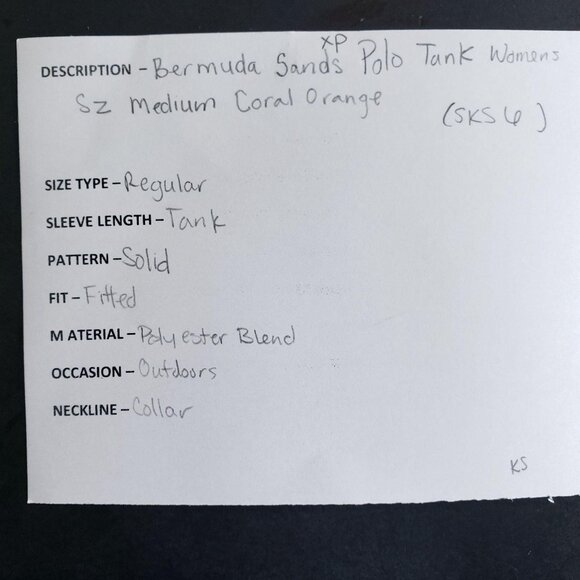 DESCRIPTION - Bermuda Sands XP Polo Tank Womens
Sz Medium Coral Orange
(SKS 6)
SIZE TYPE - Regular
SLEEVE LENGTH - Tank
PATTERN - Solid
FIT - Fitted
M ATERIAL - Polyester Blend
OCCASION - Outdoors
NECKLINE - Collar
KS